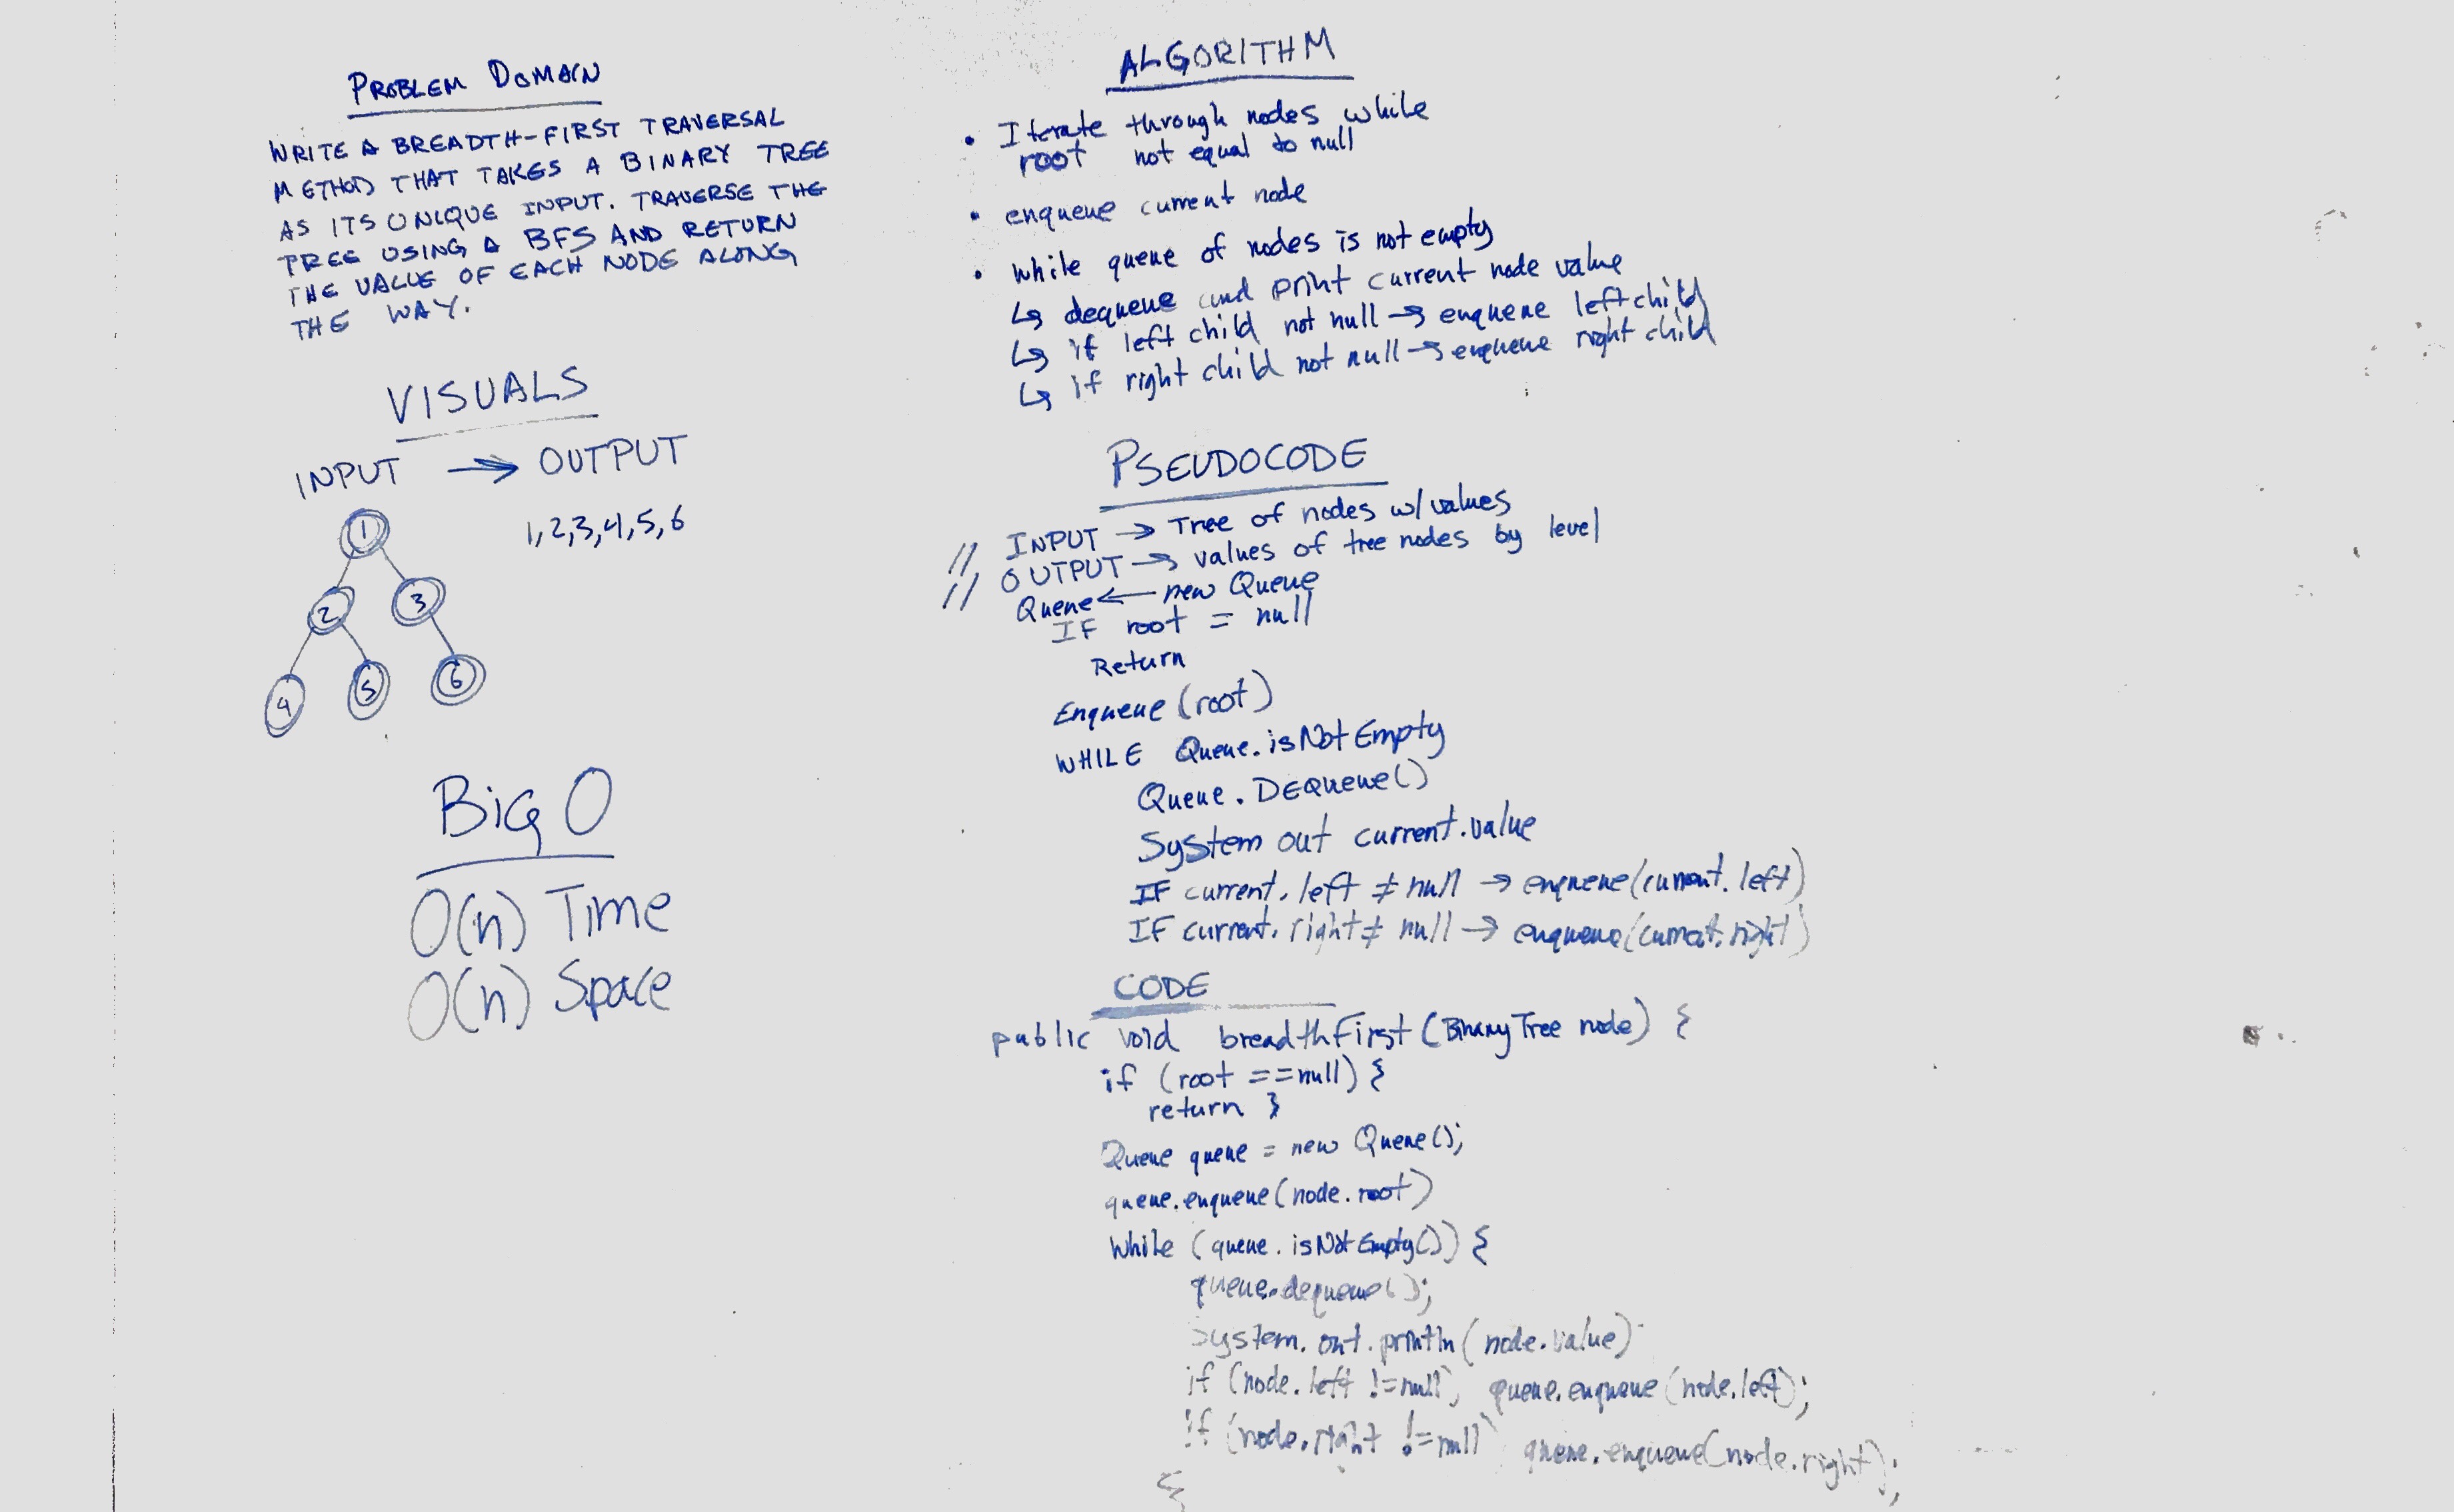 PROBLEM DOMAIN
WRITE A BREADTH-FIRST TRAVERSAL
METHOD THAT TAKES A BINARY TREE
AS ITS UNIQUE INPUT. TRAVERSE THE
TREE USING A BFS AND RETURN
THE VALUE OF EACH NODE ALONG
THE WAY.
VISUALS
INPUT → OUTPUT
1,2,3,4,5,6
1
2 3
4 5 6
Big O
O(n) Time
O(n) Space
ALGORITHM
• Iterate through nodes while
root not equal to null
• enqueue current node
• while queue of nodes is not empty
↳ dequeue and print current node value
↳ if left child not null → enqueue left child
↳ if right child not null → enqueue right child
PSEUDOCODE
// INPUT → Tree of nodes w/values
// OUTPUT → values of tree nodes by level
Queue ← new Queue
IF root = null
Return
Enqueue (root)
WHILE Queue.isNotEmpty
Queue.DEqueue()
System out current.value
IF current.left ≠ null → enqueue(current.left)
IF current.right ≠ null → enqueue(current.right)
CODE
public void breadthFirst (BinaryTree node) {
if (root ==null) {
return }
Queue queue = new Queue();
queue.enqueue(node.root)
While (queue.isNotEmpty()) {
queue.dequeue();
System.out.println(node.value)
if (node.left !=null) queue.enqueue(node.left);
if (node.right !=null) queue.enqueue(node.right);
}